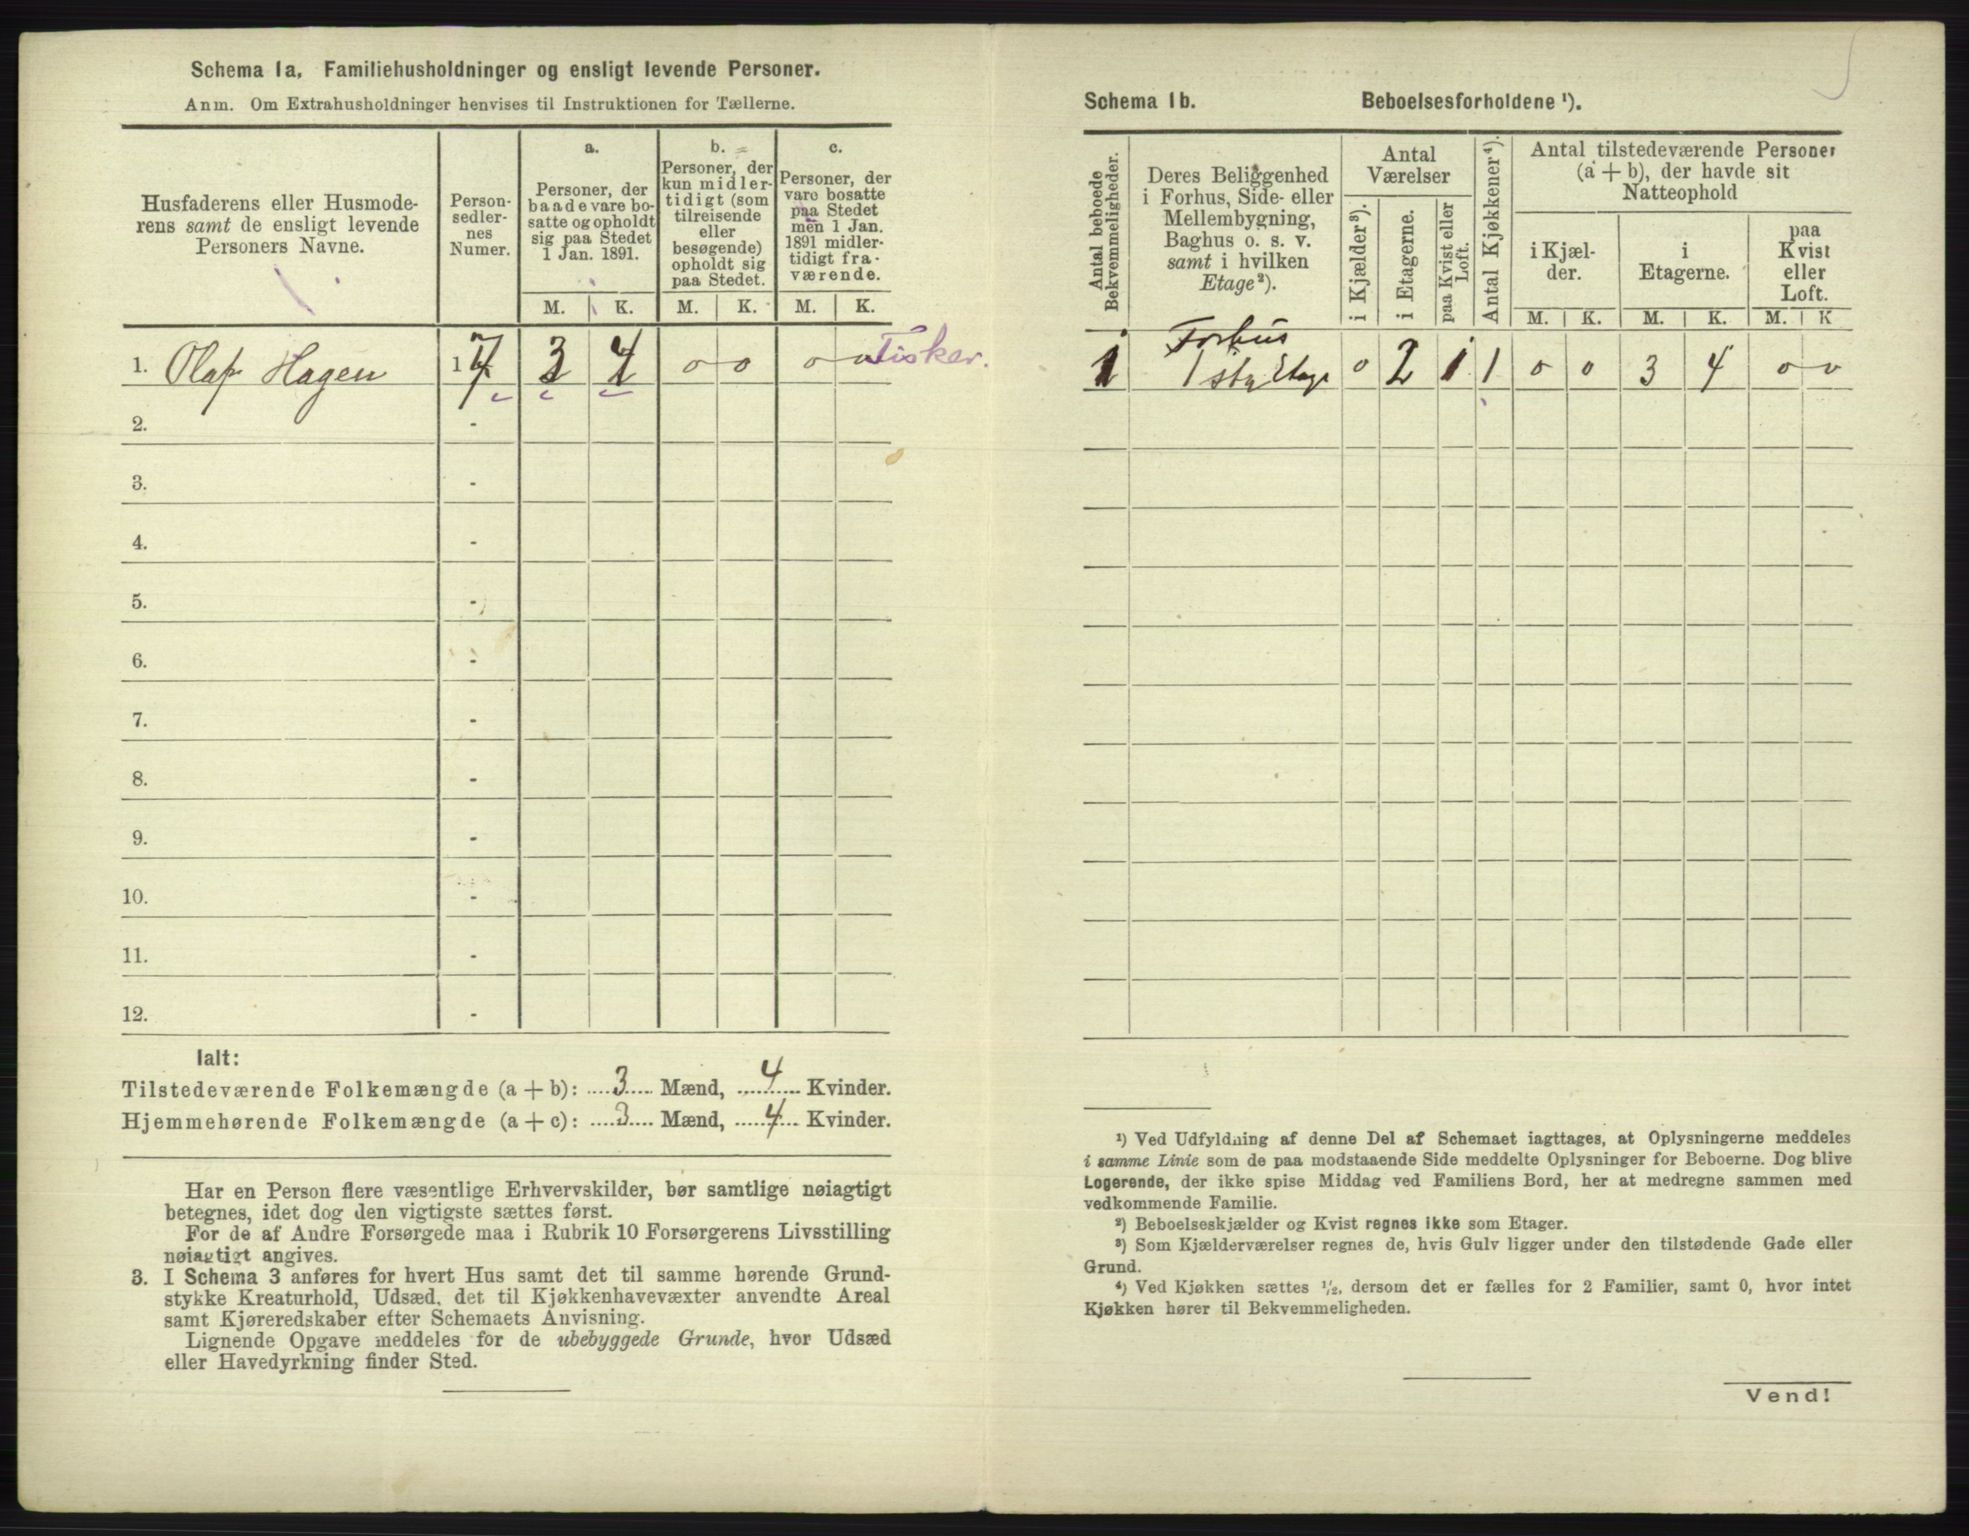 Schema 1a, Familiehusholdninger og ensligt levende Personer.
Anm. Om Extrahusholdninger henvises til Instruktionen for Tællerne.
Husfaderens eller Husmode-
rens samt de ensligt levende
Personers Navne.
Person-
sedler-
nes
Numer.
a.
Personer, der
baade vare bo-
satte og opholdt
sig paa Stedet
1 Jan. 1891.
b.
Personer, der
kun midler-
tidigt (som
tilreisende
eller
besøgende)
opholdt sig
paa Stedet.
c.
Personer, der
vare bosatte
paa Stedet
men 1 Jan.
1891 midler-
tidigt fra-
værende.
M. K. M. K. M. K.
1. Olaf Hagen 1 7 3 4 0 0 0 0 Fisker.
2. -
3. -
4. -
5. -
6. -
7. -
8. -
9. -
10. -
11. -
12. -
Ialt:
Tilstedeværende Folkemængde (a + b): 3 Mænd, 4 Kvinder.
Hjemmehørende Folkemængde (a + c): 3 Mænd, 4 Kvinder.
Har en Person flere væsentlige Erhvervskilder, bør samtlige nøiagtigt
betegnes, idet dog den vigtigste sættes først.
For de af Andre Forsørgede maa i Rubrik 10 Forsørgerens Livsstilling
nøiagtigt angives.
3. I Schema 3 anføres for hvert Hus samt det til samme hørende Grund-
stykke Kreaturhold, Udsæd, det til Kjøkkenhavevæxter anvendte Areal
samt Kjøreredskaber efter Schemaets Anvisning.
Lignende Opgave meddeles for de ubebyggede Grunde, hvor Udsæd
eller Havedyrkning finder Sted.
Schema 1b. Beboelsesforholdene ¹).
Antal beboede
Bekvemmeligheder.
Deres Beliggenhed
i Forhus, Side- eller
Mellembygning,
Baghus o. s. v.
samt i hvilken
Etage²).
Antal
Værelser
i Kjælder³).
i Etagerne.
paa Kvist eller
Loft.
Antal Kjøkkener⁴).
Antal tilstedeværende Personer
(a + b), der havde sit
Natteophold
i Kjæl-
der.
i
Etagerne.
paa
Kvist
eller
Loft.
M. K. M. K. M. K
Forhus
1 1ste Etage 0 2 1 1 0 0 3 4 0 0
¹) Ved Udfyldning af denne Del af Schemaet iagttages, at Oplysningerne meddeles
i samme Linie som de paa modstaaende Side meddelte Oplysninger for Beboerne. Dog blive
Logerende, der ikke spise Middag ved Familiens Bord, her at medregne sammen med
vedkommende Familie.
²) Beboelseskjælder og Kvist regnes ikke som Etager.
³) Som Kjælderværelser regnes de, hvis Gulv ligger under den tilstødende Gade eller
Grund.
⁴) Ved Kjøkken sættes ½, dersom det er fælles for 2 Familier, samt 0, hvor intet
Kjøkken hører til Bekvemmeligheden.
Vend!